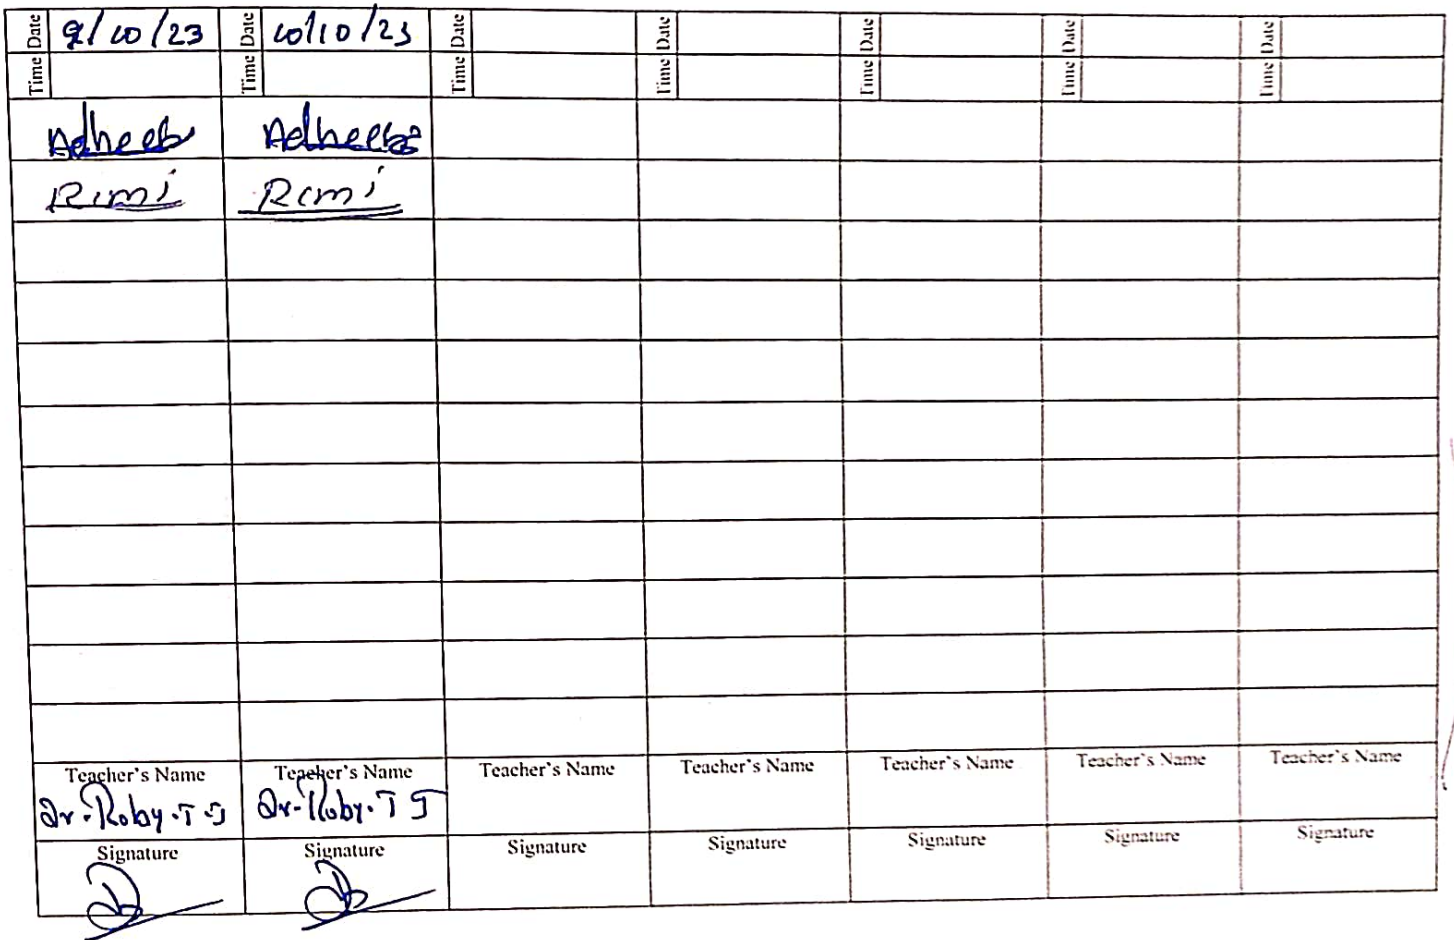 Date 9/10/23 Date 10/10/23 Date Date Date Date Date
Time Time Time Time Time Time Time
Adheeb Adheeb
Rimi Rimi
Teacher's Name Teacher's Name Teacher's Name Teacher's Name Teacher's Name Teacher's Name Teacher's Name
Dr. Roby. T J Dr. Roby. T J
Signature Signature Signature Signature Signature Signature Signature